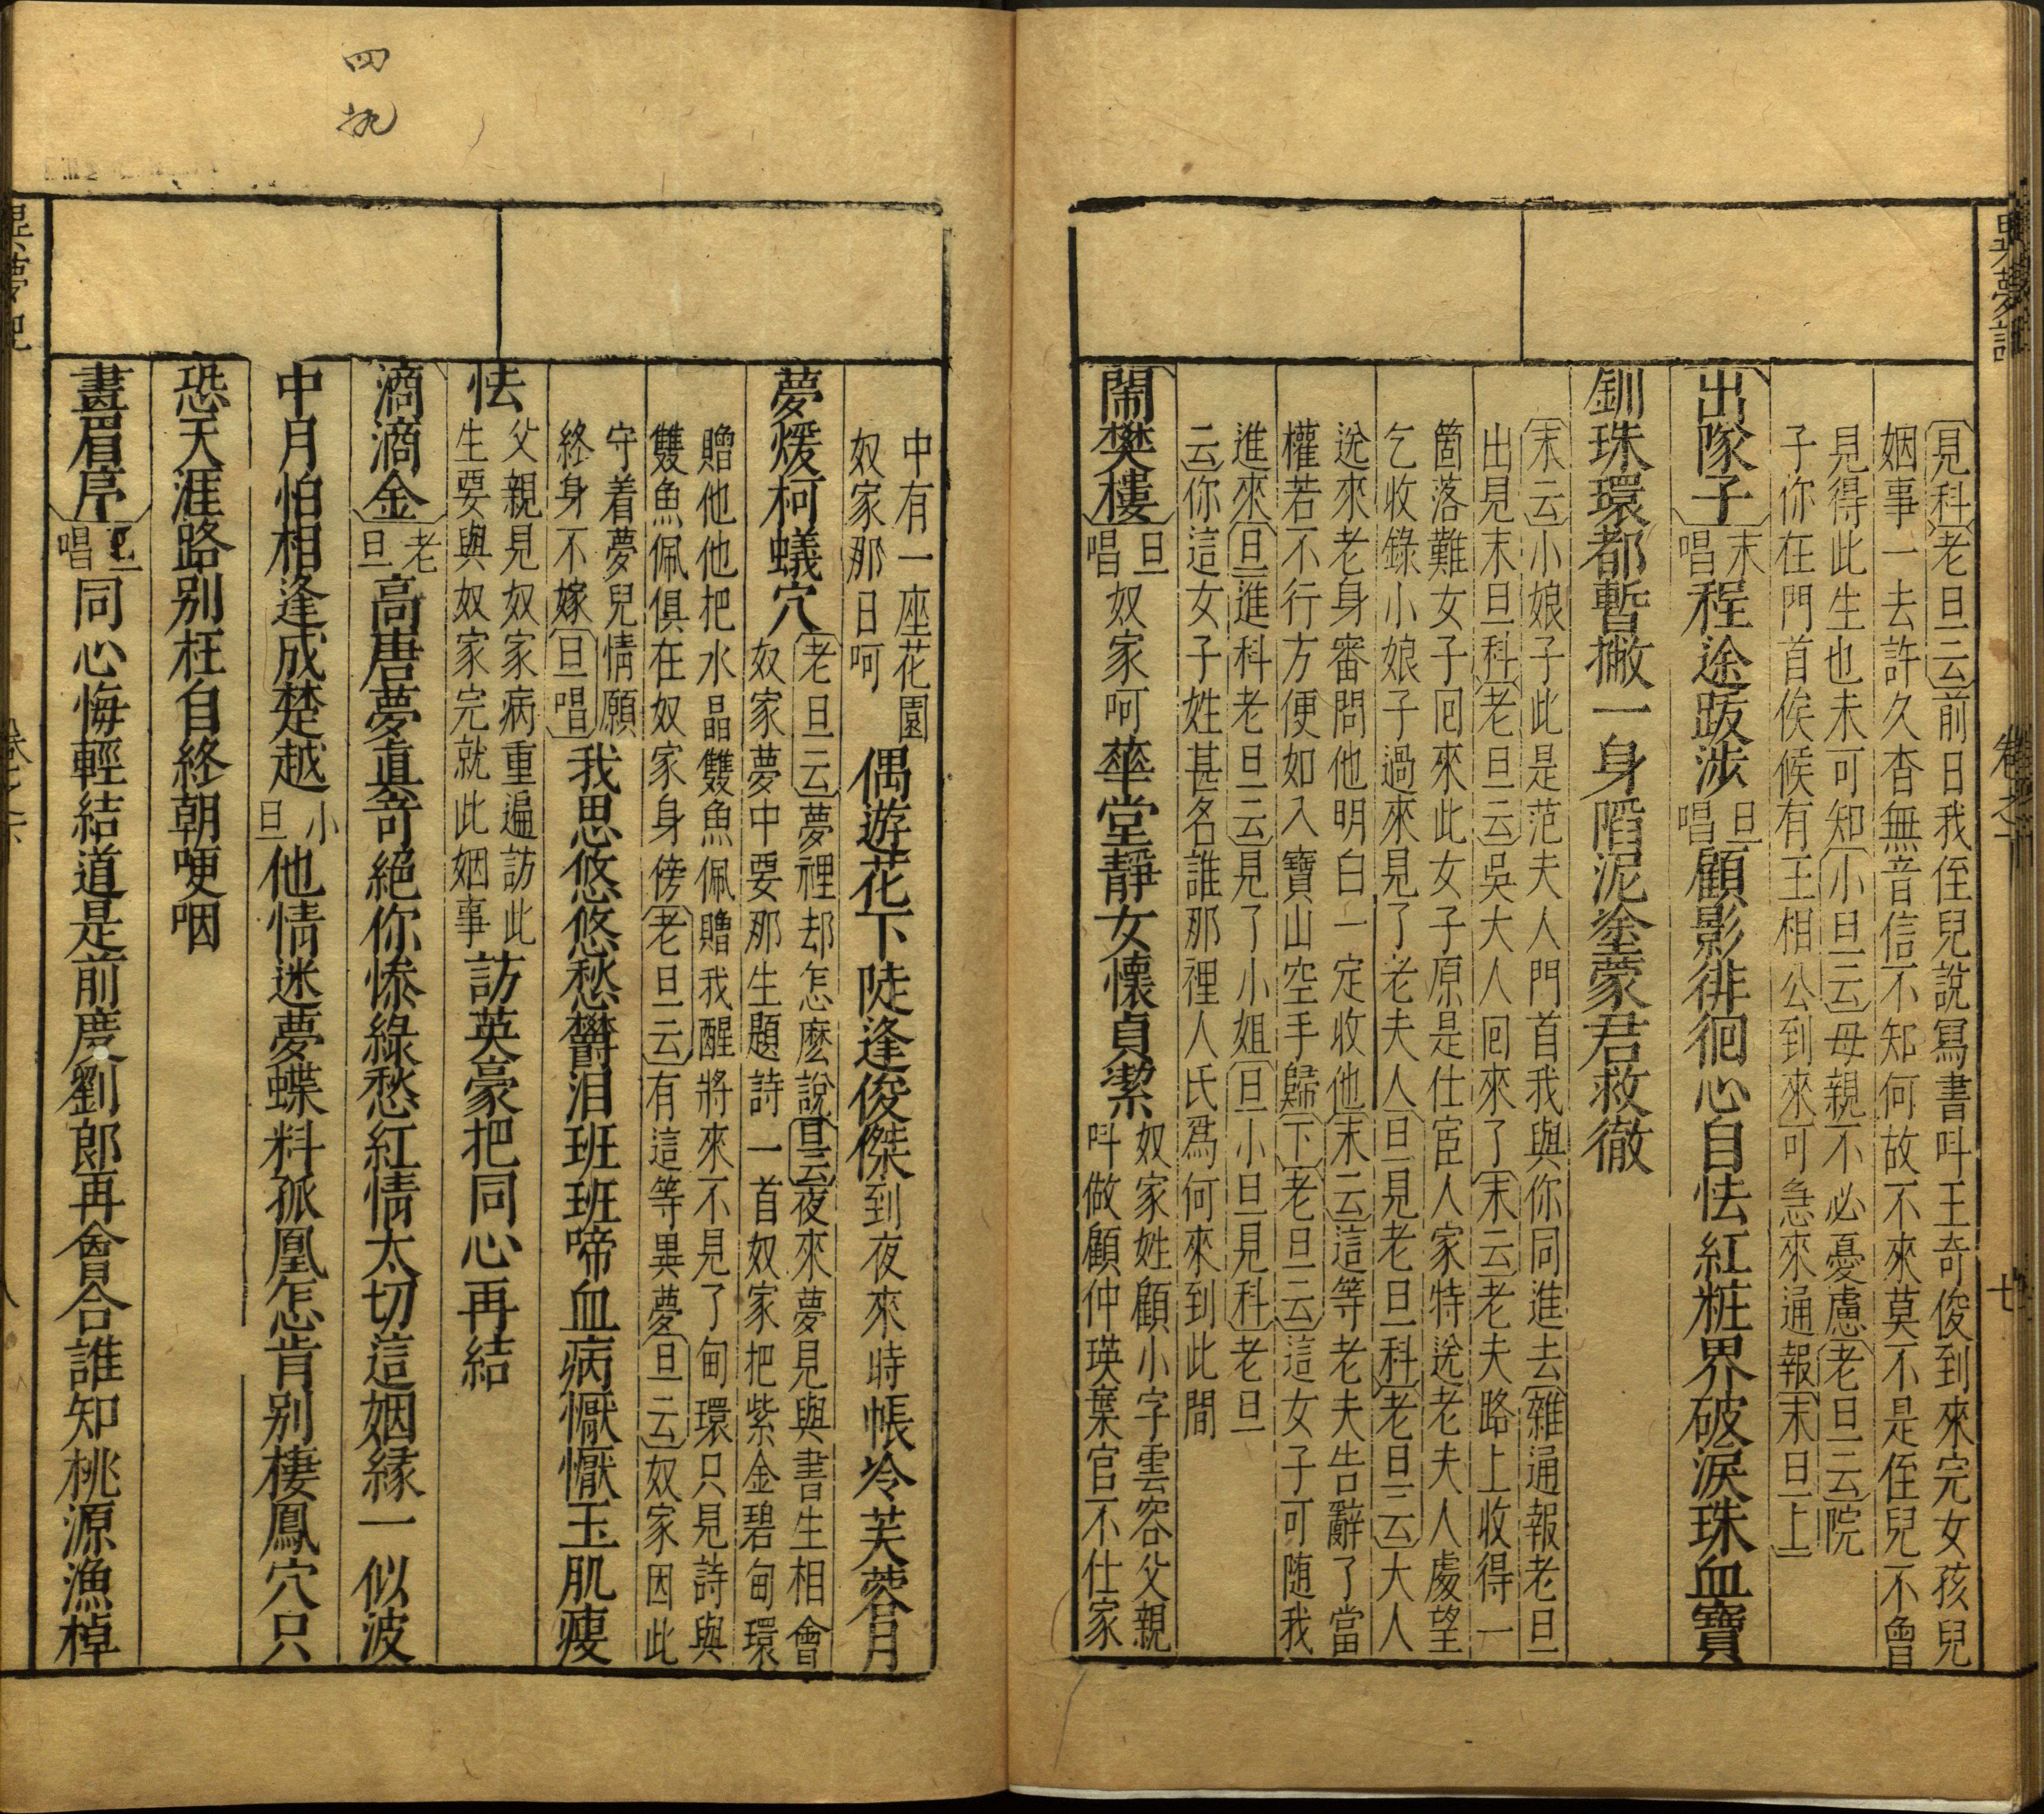 異夢記
卷之下
七
見科老旦云前日我侄兒說寫書呌王奇俊到來完女孩兒
姻事一去許久杳無音信不知何故不來莫不是侄兒不曾
見得此生也未可知小旦云母親不必憂慮老旦云院
子你在門首俟候有王相公到來可急來通報末旦上
出隊子末唱程途跋涉旦唱顧影徘徊心自怯紅粧界破淚珠血寶
釧珠環都暫撇一身陷泥塗蒙君救徹
末云小娘子此是范夫人門首我與你同進去雜通報老旦
出見末旦科老旦云吳大人回來了末云老夫路上收得一
箇落難女子回來此女子原是仕宦人家特送老夫人處望
乞收錄小娘子過來見了老夫人旦見老旦科老旦云大人
送來老身審問他明白一定收他末云這等老夫告辭了當
權若不行方便如入寶山空手歸下老旦云這女子可随我
進來旦進科老旦云見了小姐旦小旦見科老旦
云你這女子姓甚名誰那裡人氏爲何來到此間
鬧樊樓旦唱奴家呵華堂靜女懷貞潔奴家姓顧小字雲容父親
呌做顧仲瑛棄官不仕家
中有一座花園
奴家那日呵偶遊花下陡逢俊傑到夜來時帳冷芙蓉月
夢煖柯蟻穴老旦云夢裡却怎麽說旦云夜來夢見與書生相會
奴家夢中要那生題詩一首奴家把紫金碧甸環
贈他他把水晶雙魚佩贈我醒將來不見了甸環只見詩與
雙魚佩俱在奴家身傍老旦云有這等異夢旦云奴家因此
守着夢兒情願
終身不嫁旦唱我思悠悠愁欝泪班班啼血病懨懨玉肌瘦
怯父親見奴家病重遍訪此
生要與奴家完就此姻事訪英豪把同心再結
滴滴金老旦高唐夢真奇絕你慘綠愁紅情太切這姻緣一似波
中月怕相逢成楚越小旦他情迷夢蝶料孤凰怎肯别棲鳳穴只
恐天涯路别枉自終朝哽咽
畫眉序旦唱同心悔輕結道是前度劉郎再會合誰知桃源漁棹
異夢記
四执